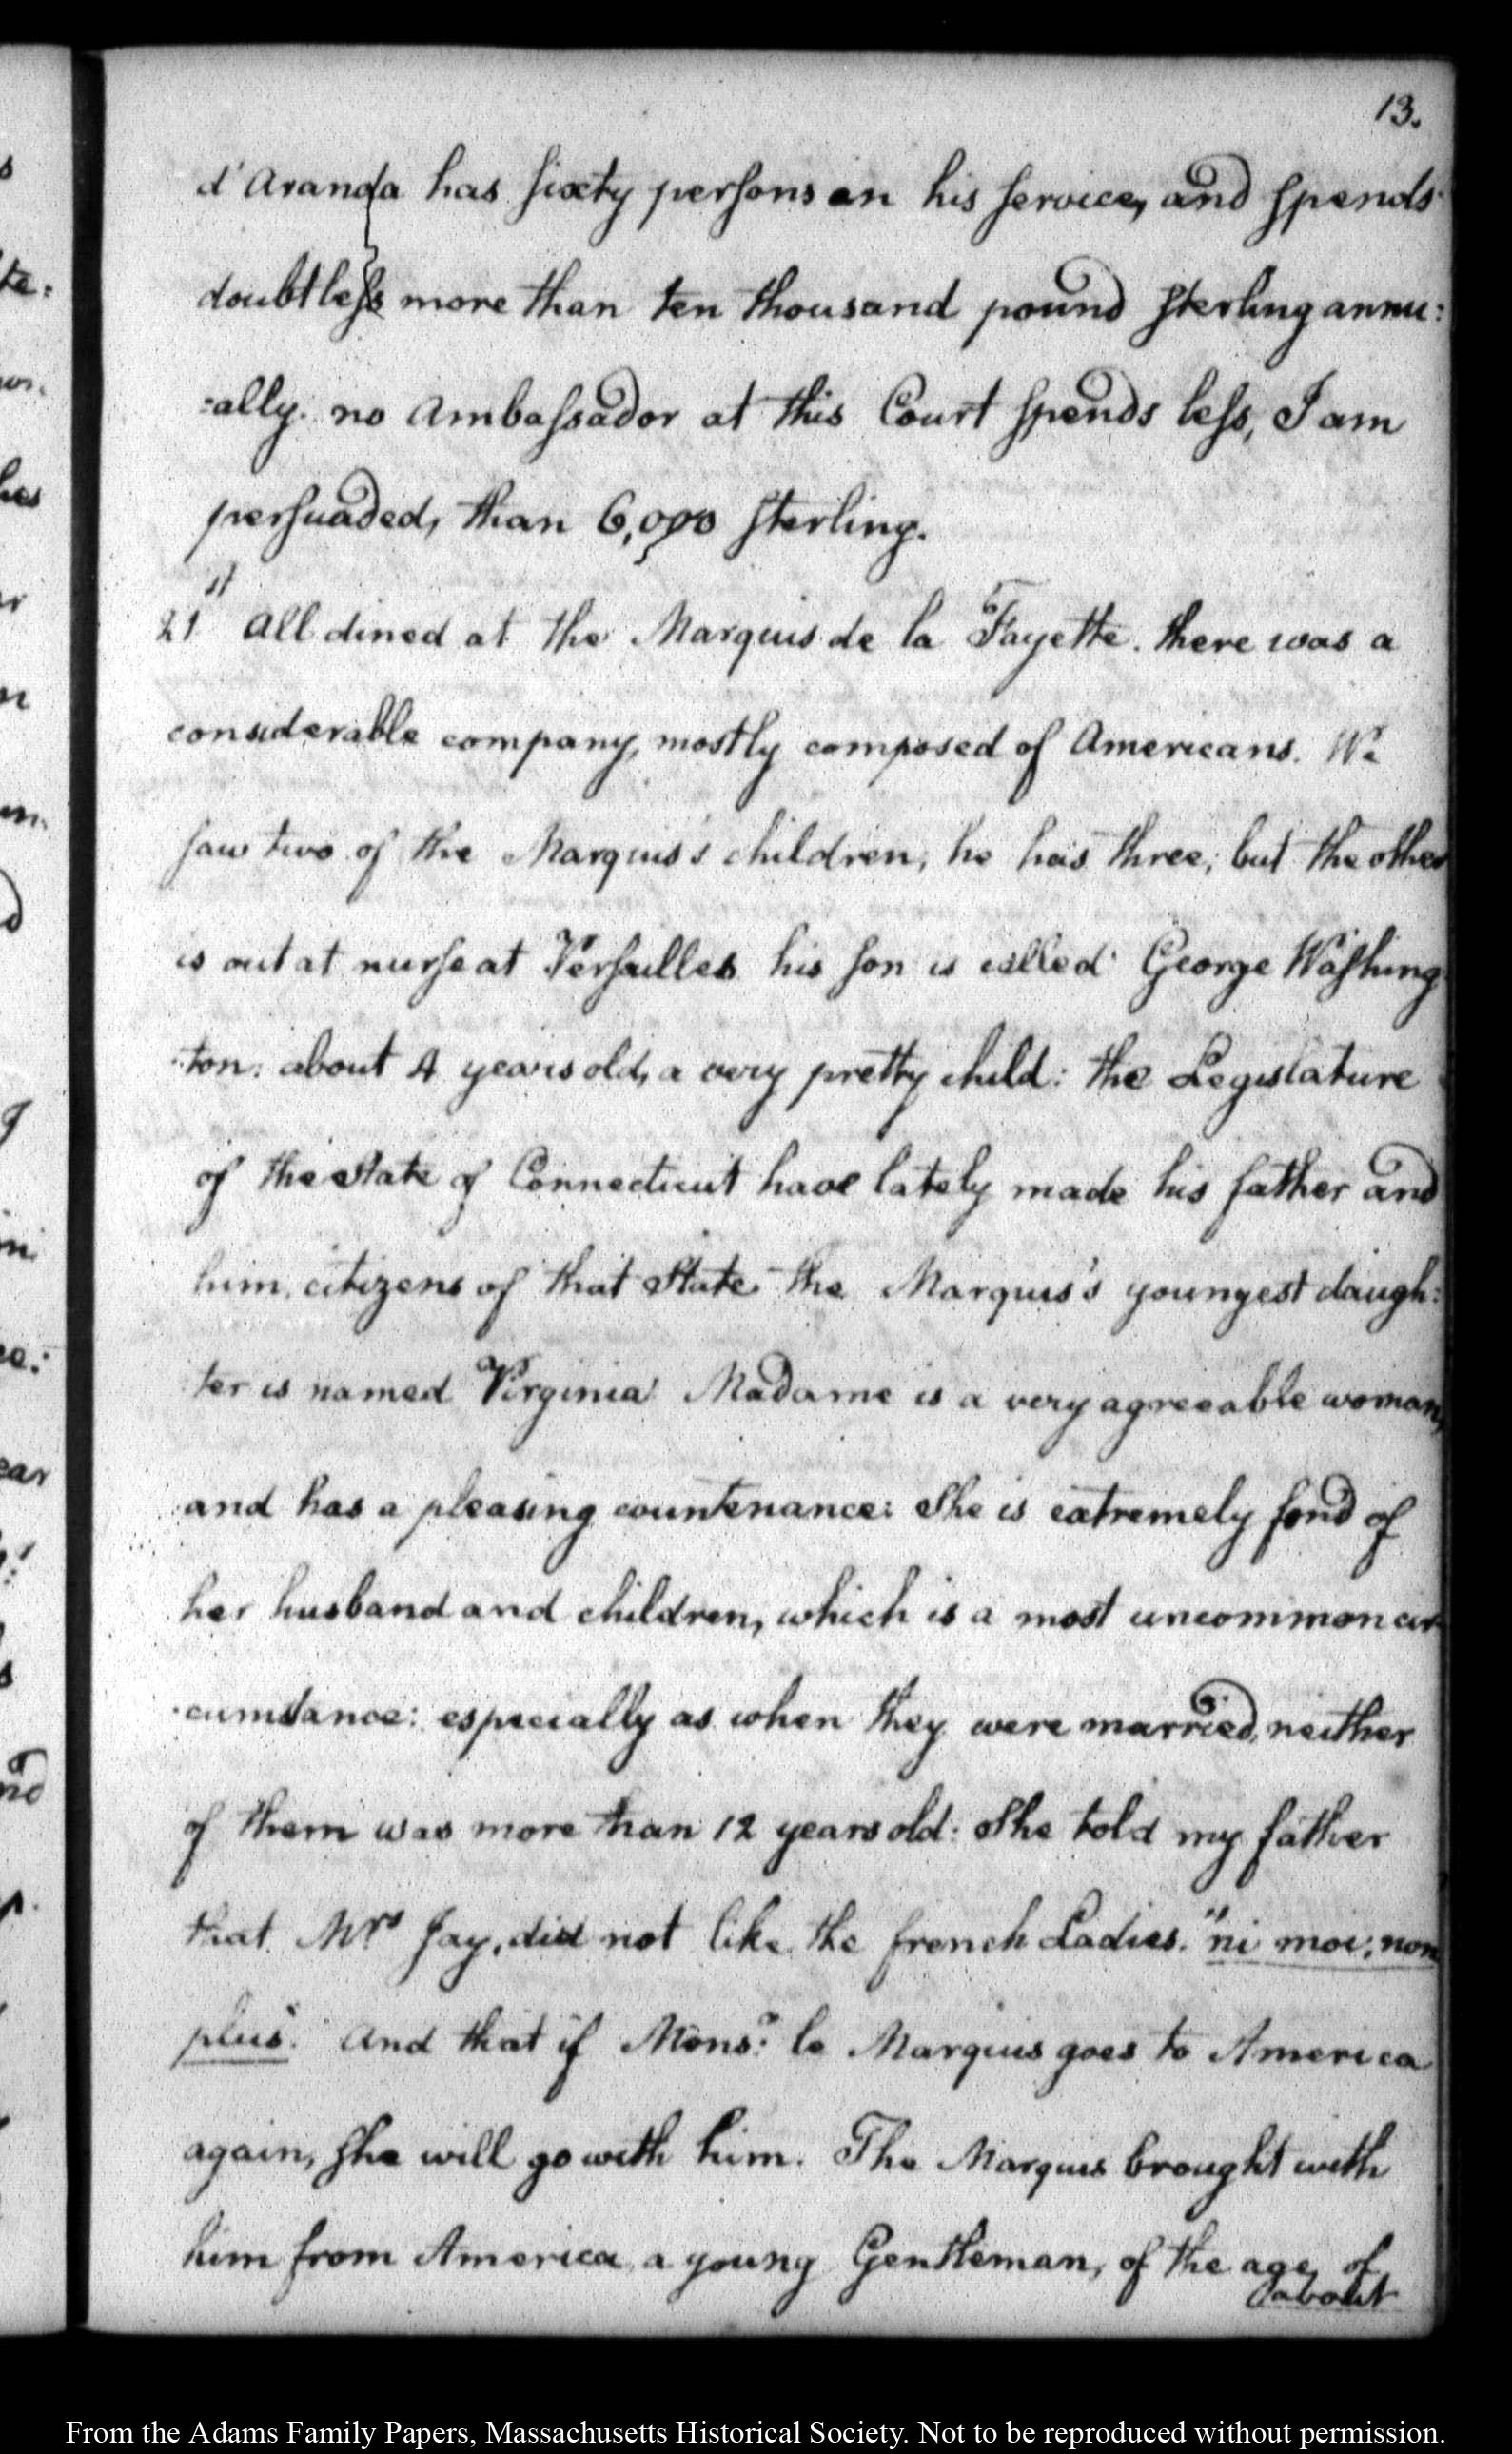 13.
d'Aranda has sixty persons in his service, and spends
doubtless more than ten thousand pound sterling annu:
:ally. no Ambassador at this Court spends less, I am
persuaded, than 6,000 sterling.
21st All dined at the Marquis de la Fayette. there was a
considerable company, mostly composed of Americans. We
saw two of the Marquis's children, he has three; but the other
is out at nurse at Versailles his son is called George Washing
:ton: about 4 years old, a very pretty child: the Legislature
of the State of Connecticut have lately made his father and
him, citizens of that State the Marquis's youngest daugh:
ter is named Virginia Madame is a very agreeable woman,
and has a pleasing countenance: She is extremely fond of
her husband and children, which is a most uncommon cir
:cumstance: especially as when they were married, neither
of them was more than 12 years old: She told my father
that Mrs Jay, did not like the french Ladies. "ni moi; non
plus." And that if Monsr: le Marquis goes to America
again, She will go with him. The Marquis brought with
him from America, a young Gentleman, of the age of
about
From the Adams Family Papers, Massachusetts Historical Society. Not to be reproduced without permission.